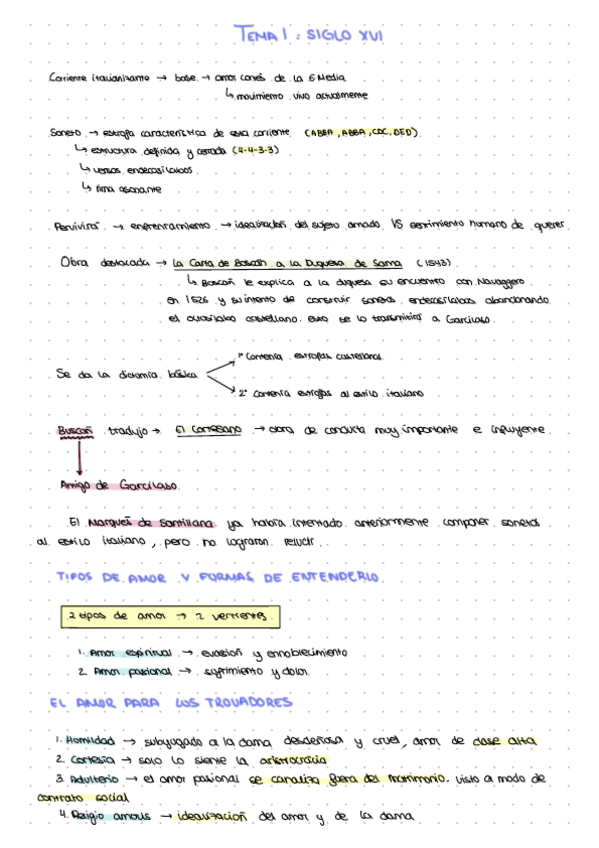 TEMA 1: SIGLO XVI
Corriente italianizante → base → amor cortés de la E Media
↳ movimiento vivo actualmente
Soneto → estrofa característica de esta corriente (ABBA, ABBA, CDC, DED)
↳ estructura definida y cerrada (4-4-3-3)
↳ versos endecasílabos
↳ rima asonante
Pervivirá → enfrentamiento → idealización del sujeto amado VS sentimiento humano de querer
Obra destacada → La Carta de Boscán a la Duquesa de Soma (1543)
↳ Boscán le explica a la duquesa su encuentro con Navaggero
en 1526 y su intento de construir sonetos endecasílabos abandonando
el octosílabo castellano. Esto se lo transmitirá a Garcilaso.
1º Contenía estrofas castellanas
Se da la dicotomía básica
2º Contenía estrofas al estilo italiano
Boscán tradujo → El Cortesano → obra de conducta muy importante e influyente
Amigo de Garcilaso
El Marqués de Santillana ya había intentado anteriormente componer sonetos
al estilo italiano, pero no lograron relucir.
TIPOS DE AMOR Y FORMAS DE ENTENDERLO
2 tipos de amor → 2 vertientes
1. Amor espiritual → evasión y ennoblecimiento
2. Amor pasional → sufrimiento y dolor
EL AMOR PARA LOS TROVADORES
1. Humildad → subyugado a la dama desdeñosa y cruel, amor de clase alta
2. Cortesía → solo lo siente la aristocracia
3. Adulterio → el amor pasional se canaliza fuera del matrimonio. Visto a modo de
contrato social
4. Religio amoris → idealización del amor y de la dama